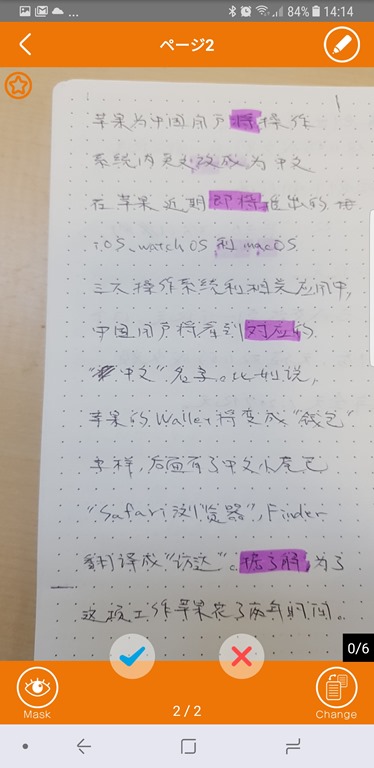 14:14
84%
ページ2
苹果为中国用户将操作
系统内 改成为中文
在苹果近期即将推出的
iOS、watchOS 和 macOS
三大操作系统和相关应用中,
中国用户将看到对应的
"中文"名字。比如说,
苹果的Wallet将变成"钱包"
后面有了中文小尾巴
"Safari浏览器",Finder
翻译成"访达"。据了解,为了
这项工作苹果花了两年时间。
0/6
Mask
2 / 2
Change